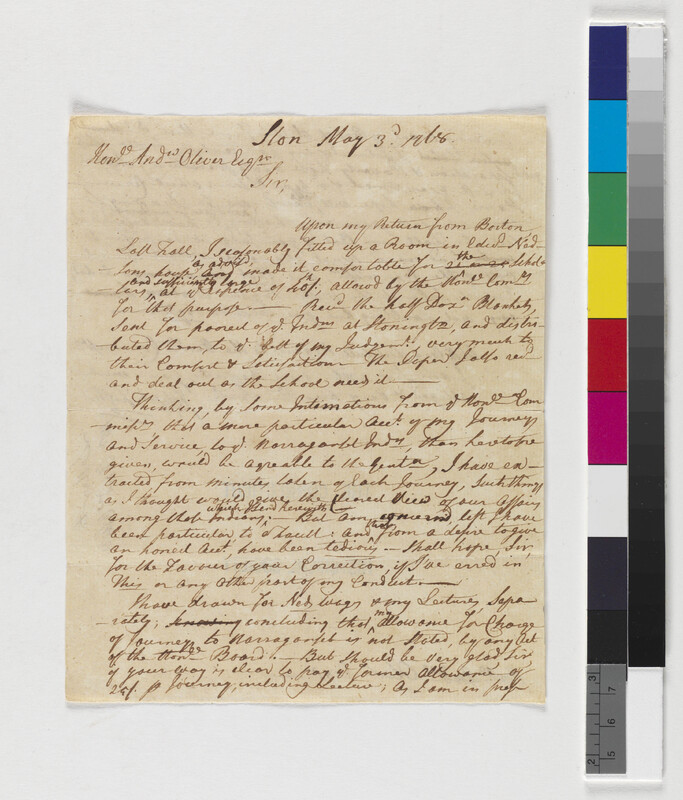 Ston May 3d. 1768.
Honod. Andrw Oliver Esqr
Sir,
Upon my Return from Boston
Last Fall, I seasonably fitted up a Room in Edwd. Ned-
-sons house as above and made it comfortable for the Schol-
and sufficiently large
-lars, at ye Expence of allowd by the Honod. Comrs.
for that purpose — Recd. the half Dozn Blankets,
sent for poorest of ye. Indns at Stonington, and distri-
buted them, to ye best of my Judgent. very much to
their Comfort & Satisfaction — The Paper I also recd
and deal out as the School need it. —
Thinking, by some Intimations from ye Honod. Com-
-missrs that a more particular Acct. of my Journeys
and Service to ye. Narraganset Indns, than heretofore
given, would be agreable to the Gentn, I have ex-
tracted from minutes taken of each Journey, such things
as I thought would give the clearest View of our Affairs
among that Indians; which I send herewith — But am left I have
been particular to a Fault: and tho from a desire to give
an honest Acct, have been tedious — Shall hope, Sir,
for the Favour of your Correction, if I've erred in
This or any other part of my Conduct. —
I have drawn for Neds wages & my Lectures sepa-
-rately; concluding that my Allowance for Charge
of Journeys to Narraganset is not stated, by any Act
of the Honod. Board. — But should be very glad Sir
if your way is clear to pay ye former Allowance of
25/. pr Journey, including Lecture; as I am in